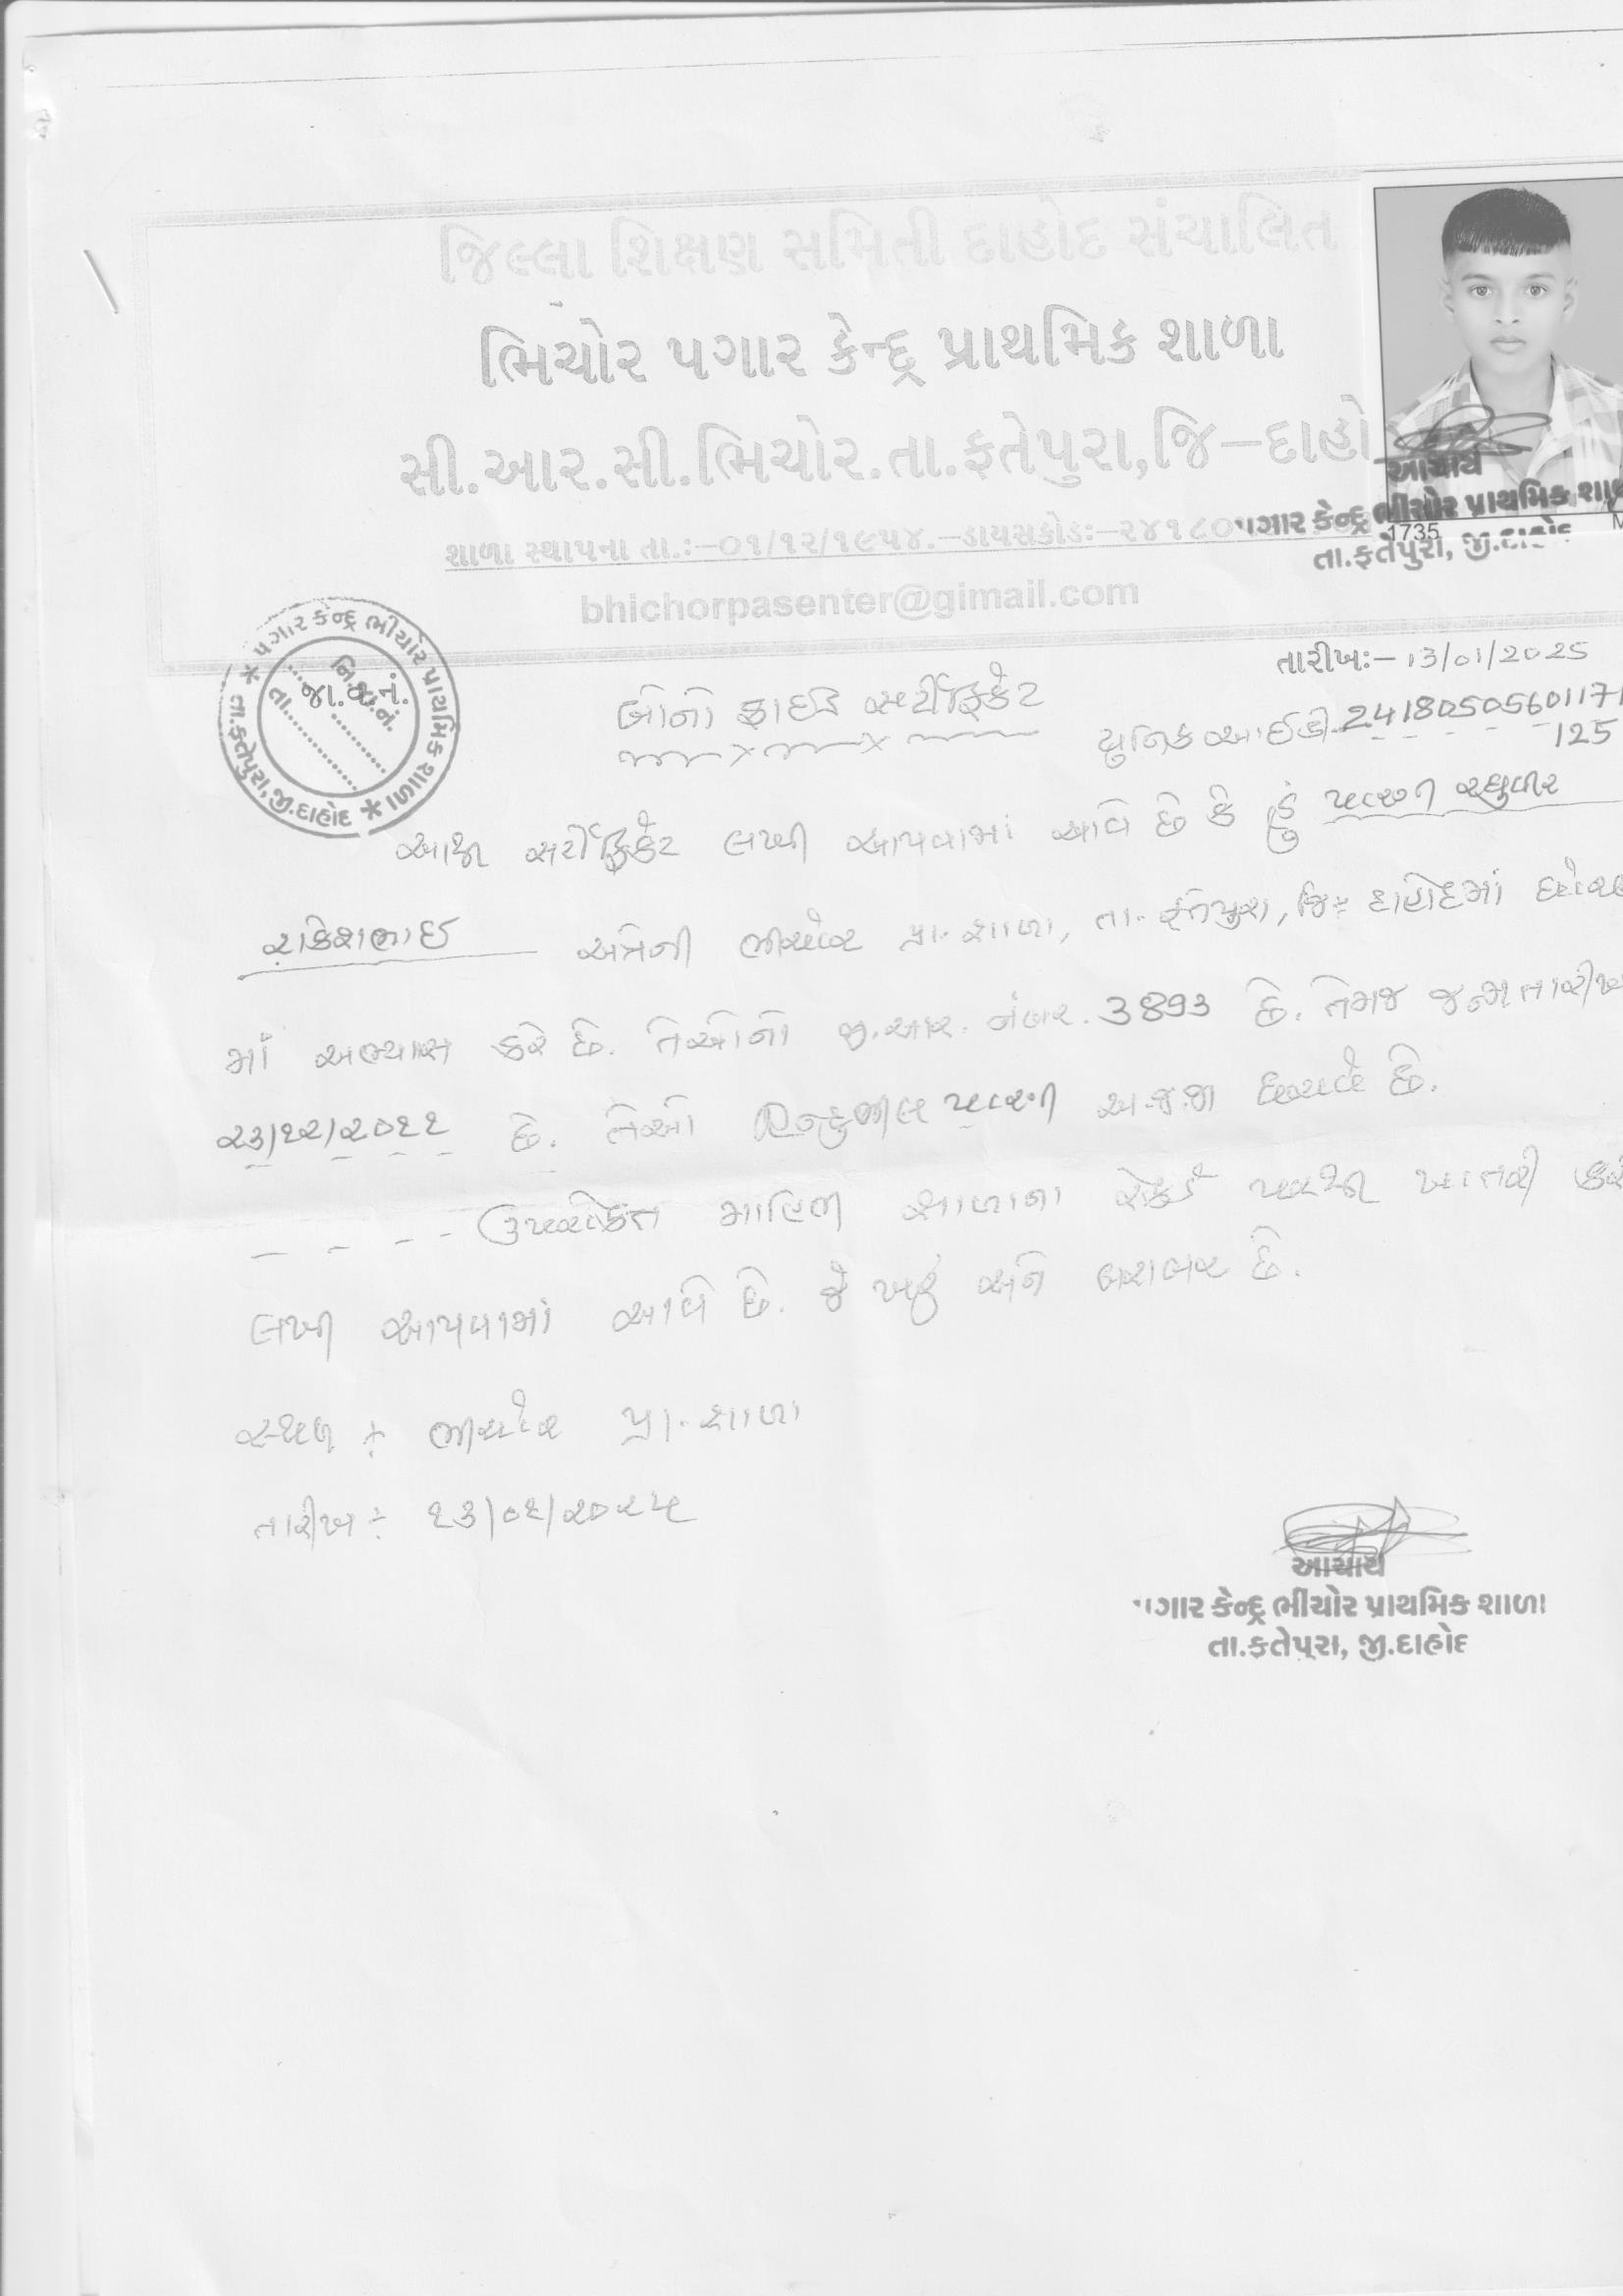 જિલ્લા શિક્ષણ સમિતી દાહોદ સંચાલિત
ભિચોર પગાર કેન્દ્ર પ્રાથમિક શાળા
સી.આર.સી.ભિચોર.તા.ફતેપુરા,જિ–દાહો
આચાર્ય
પગાર કેન્દ્ર ભીંચોર પ્રાથમિક શાળ
1735
તા.ફતેપુરા, જી.દાહોદ
શાળા સ્થાપના તા.:–૦૧/૧૨/૧૯૫૪.–ડાયસકોડઃ–૨૪૧૮૦
bhichorpasenter@gimail.com
પગાર કેન્દ્ર ભીંચોર પ્રાથમિક શાળા
તા.ફતેપુરા, જી.દાહોદ
જા.નં.
તા.
તારીખઃ– 13/01/2025
બોનોફાઈડ સર્ટીફિકેટ
યુનિક આઈડી. 2418050560117
125
આથી સર્ટીફિકેટ લખી આપવામાં આવે છે કે હું પારગી રઘુવીર
રાકેશભાઈ અત્રેની ભીચોર પ્રા. શાળા, તા. ફતેપુરા, જિ: દાહોદમાં
માં અભ્યાસ કરે છે. તેઓનો જી.આર. નંબર. 3893 છે. તેમજ જન્મતારીખ
૨૩/૧૨/૨૦૧૧ છે. તેઓ હિન્દુભીલ પારગી અ.જ.જા ધરાવે છે.
ઉપરોક્ત માહિતી શાળાના રેકર્ડ પરથી ખાતરી કર
લખી આપવામાં આવે છે. જે ખરું અને બરાબર છે.
સ્થળ : ભીચોર પ્રા. શાળા
તારીખ : ૧૩/૦૧/૨૦૨૫
આચાર્ય
પગાર કેન્દ્ર ભીંચોર પ્રાથમિક શાળા
તા.ફતેપુરા, જી.દાહોદ